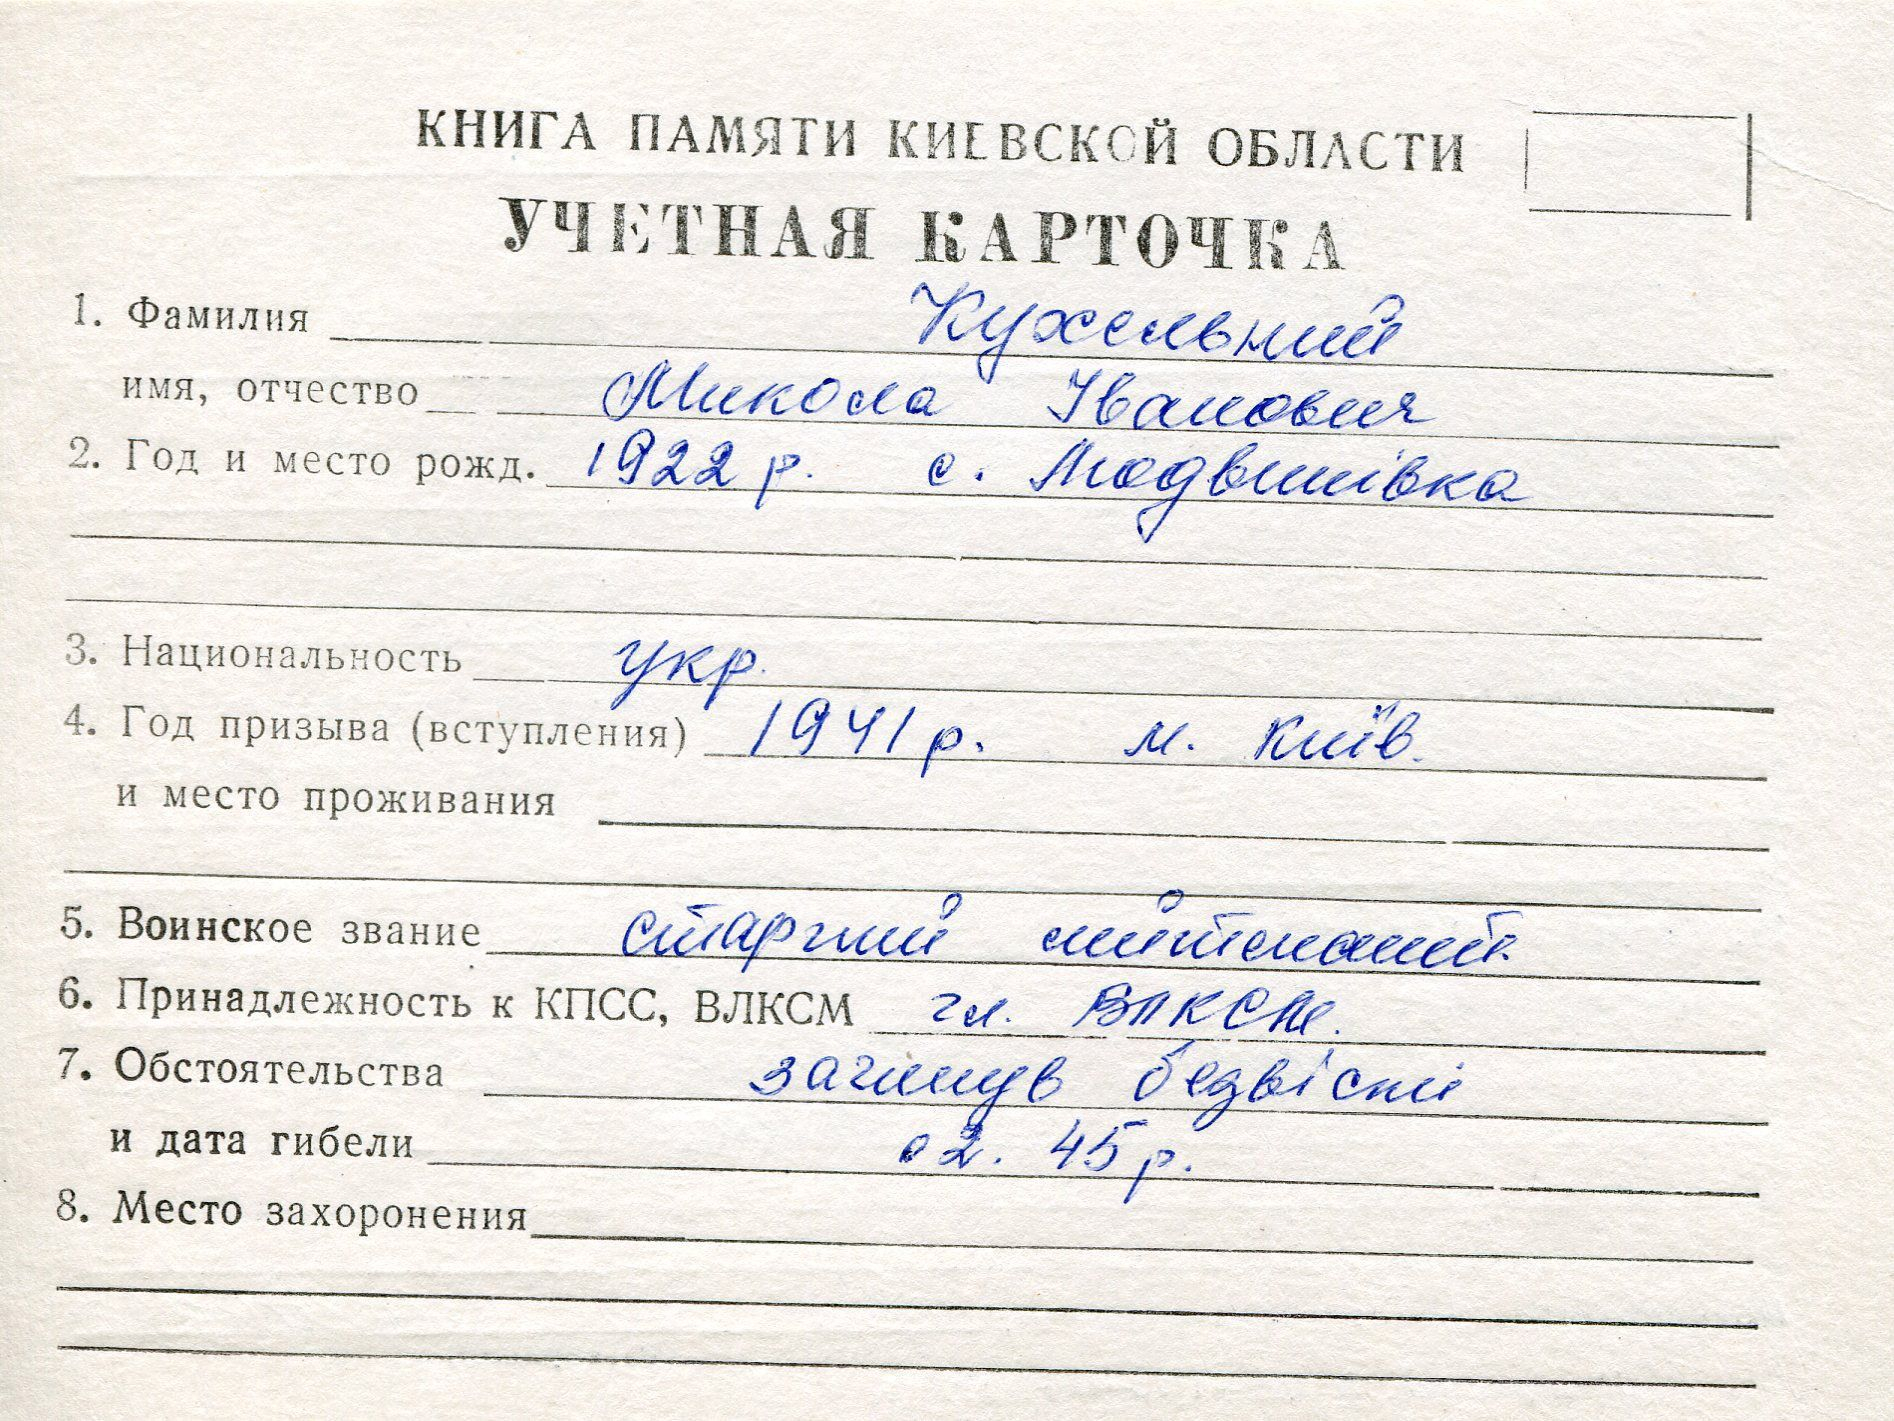 КНИГА ПАМЯТИ КИЕВСКОЙ ОБЛАСТИ
УЧЕТНАЯ КАРТОЧКА
1. Фамилия Кухельний
имя, отчество Микола Іванович
2. Год и место рожд. 1922 р. с. Людвинівка
3. Национальность укр.
4. Год призыва (вступления) 1941 р. м. Київ.
и место проживания
5. Воинское звание старший лейтенант
6. Принадлежность к КПСС, ВЛКСМ чл. ВЛКСМ.
7. Обстоятельства загинув безвісті
и дата гибели 02. 45 р.
8. Место захоронения